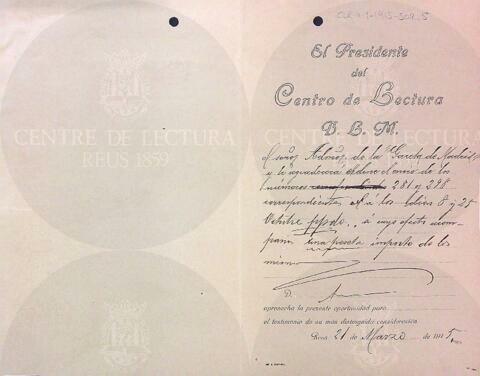 CLR-4-1-1915-509_5
El Presidente
del
Centro de Lectura
B. L. M.
CENTRE DE LECTURA
REUS 1859
al señor Admor. de la "Gaceta de Madrid"
y le agradecería el envio de los
números 281 y 298
correspondientes a los 8 y 25
Octubre ppdo., a cuyo efecto acom-
paña una peseta importe de los
mismos
D.
aprovecha la presente oportunidad para
el testimonio de su más distinguida consideración
Reus, 21 de Marzo de 1915.